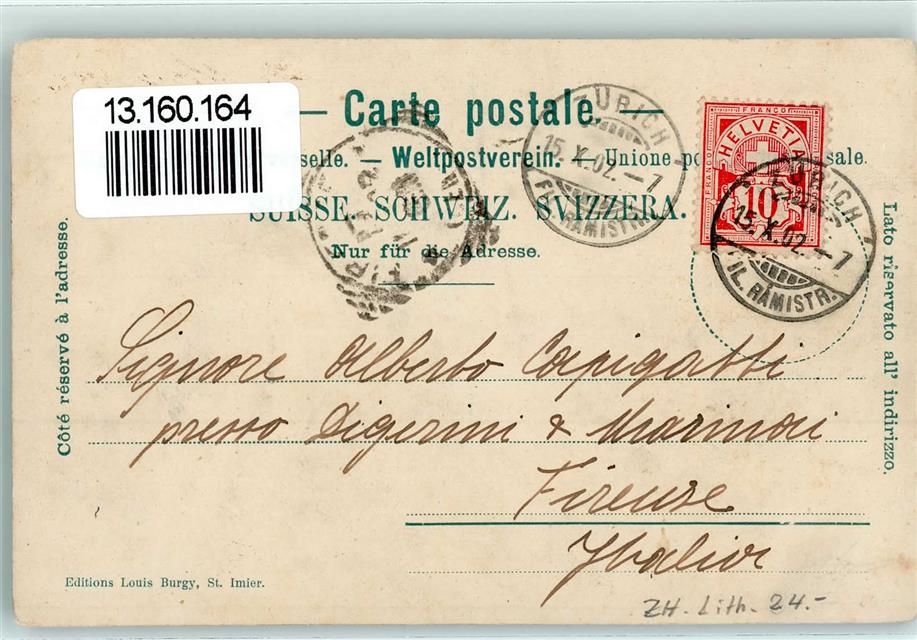 13.160.164
Carte postale.
selle. — Weltpostverein. — Unione po sale.
SUISSE. SCHWEIZ. SVIZZERA.
Nur für die Adresse.
Côté réservé à l'adresse.
Lato riservato all' indirizzo.
ZÜRICH
15.X.02.–7
FIL. RÄMISTR.
FRANCO
HELVETIA
FRANCO
FRANCO
10
ZÜRICH
15.X.02.–7
FIL. RÄMISTR.
Signore Alberto Capigatti
presso Digerini & Marinai
Firenze
Italia
Editions Louis Burgy, St. Imier.
ZH. Lith. 24.-